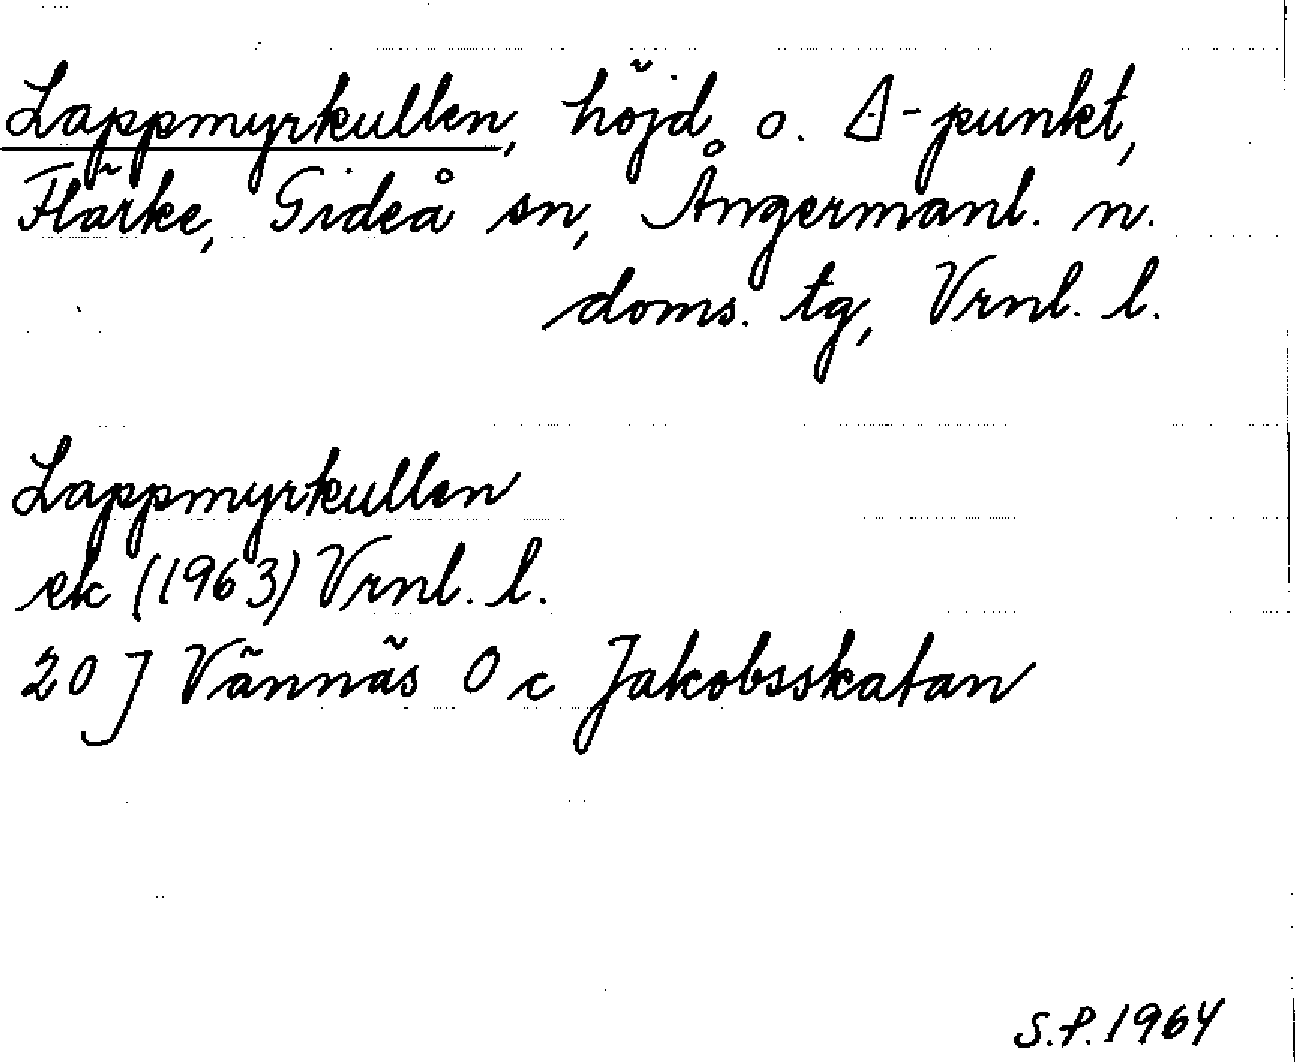 Lappmyrkullen, höjd o. Δ-punkt,
Flärke, Gideå sn, Ångermanl. n.
doms. tg, Vrnl. l.
Lappmyrkullen
ek (1963) Vrnl. l.
20 J Vännäs 0 c Jakobsskatan
S.P. 1964